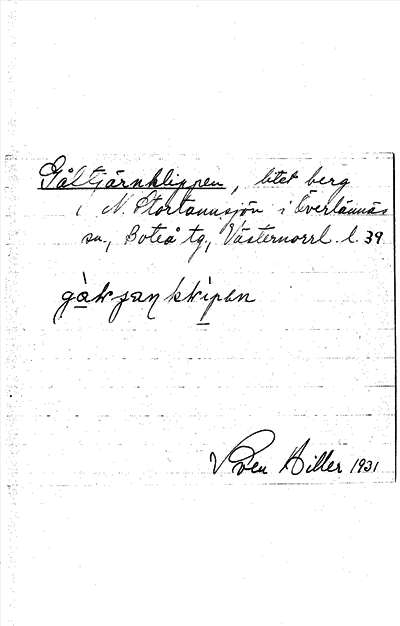 Gåltjärnklippen, litet berg
i N. Stortannsjön i Överlännäs
sn., Boteå tg., Västernorrl. l. 39
Sven Hiller 1931